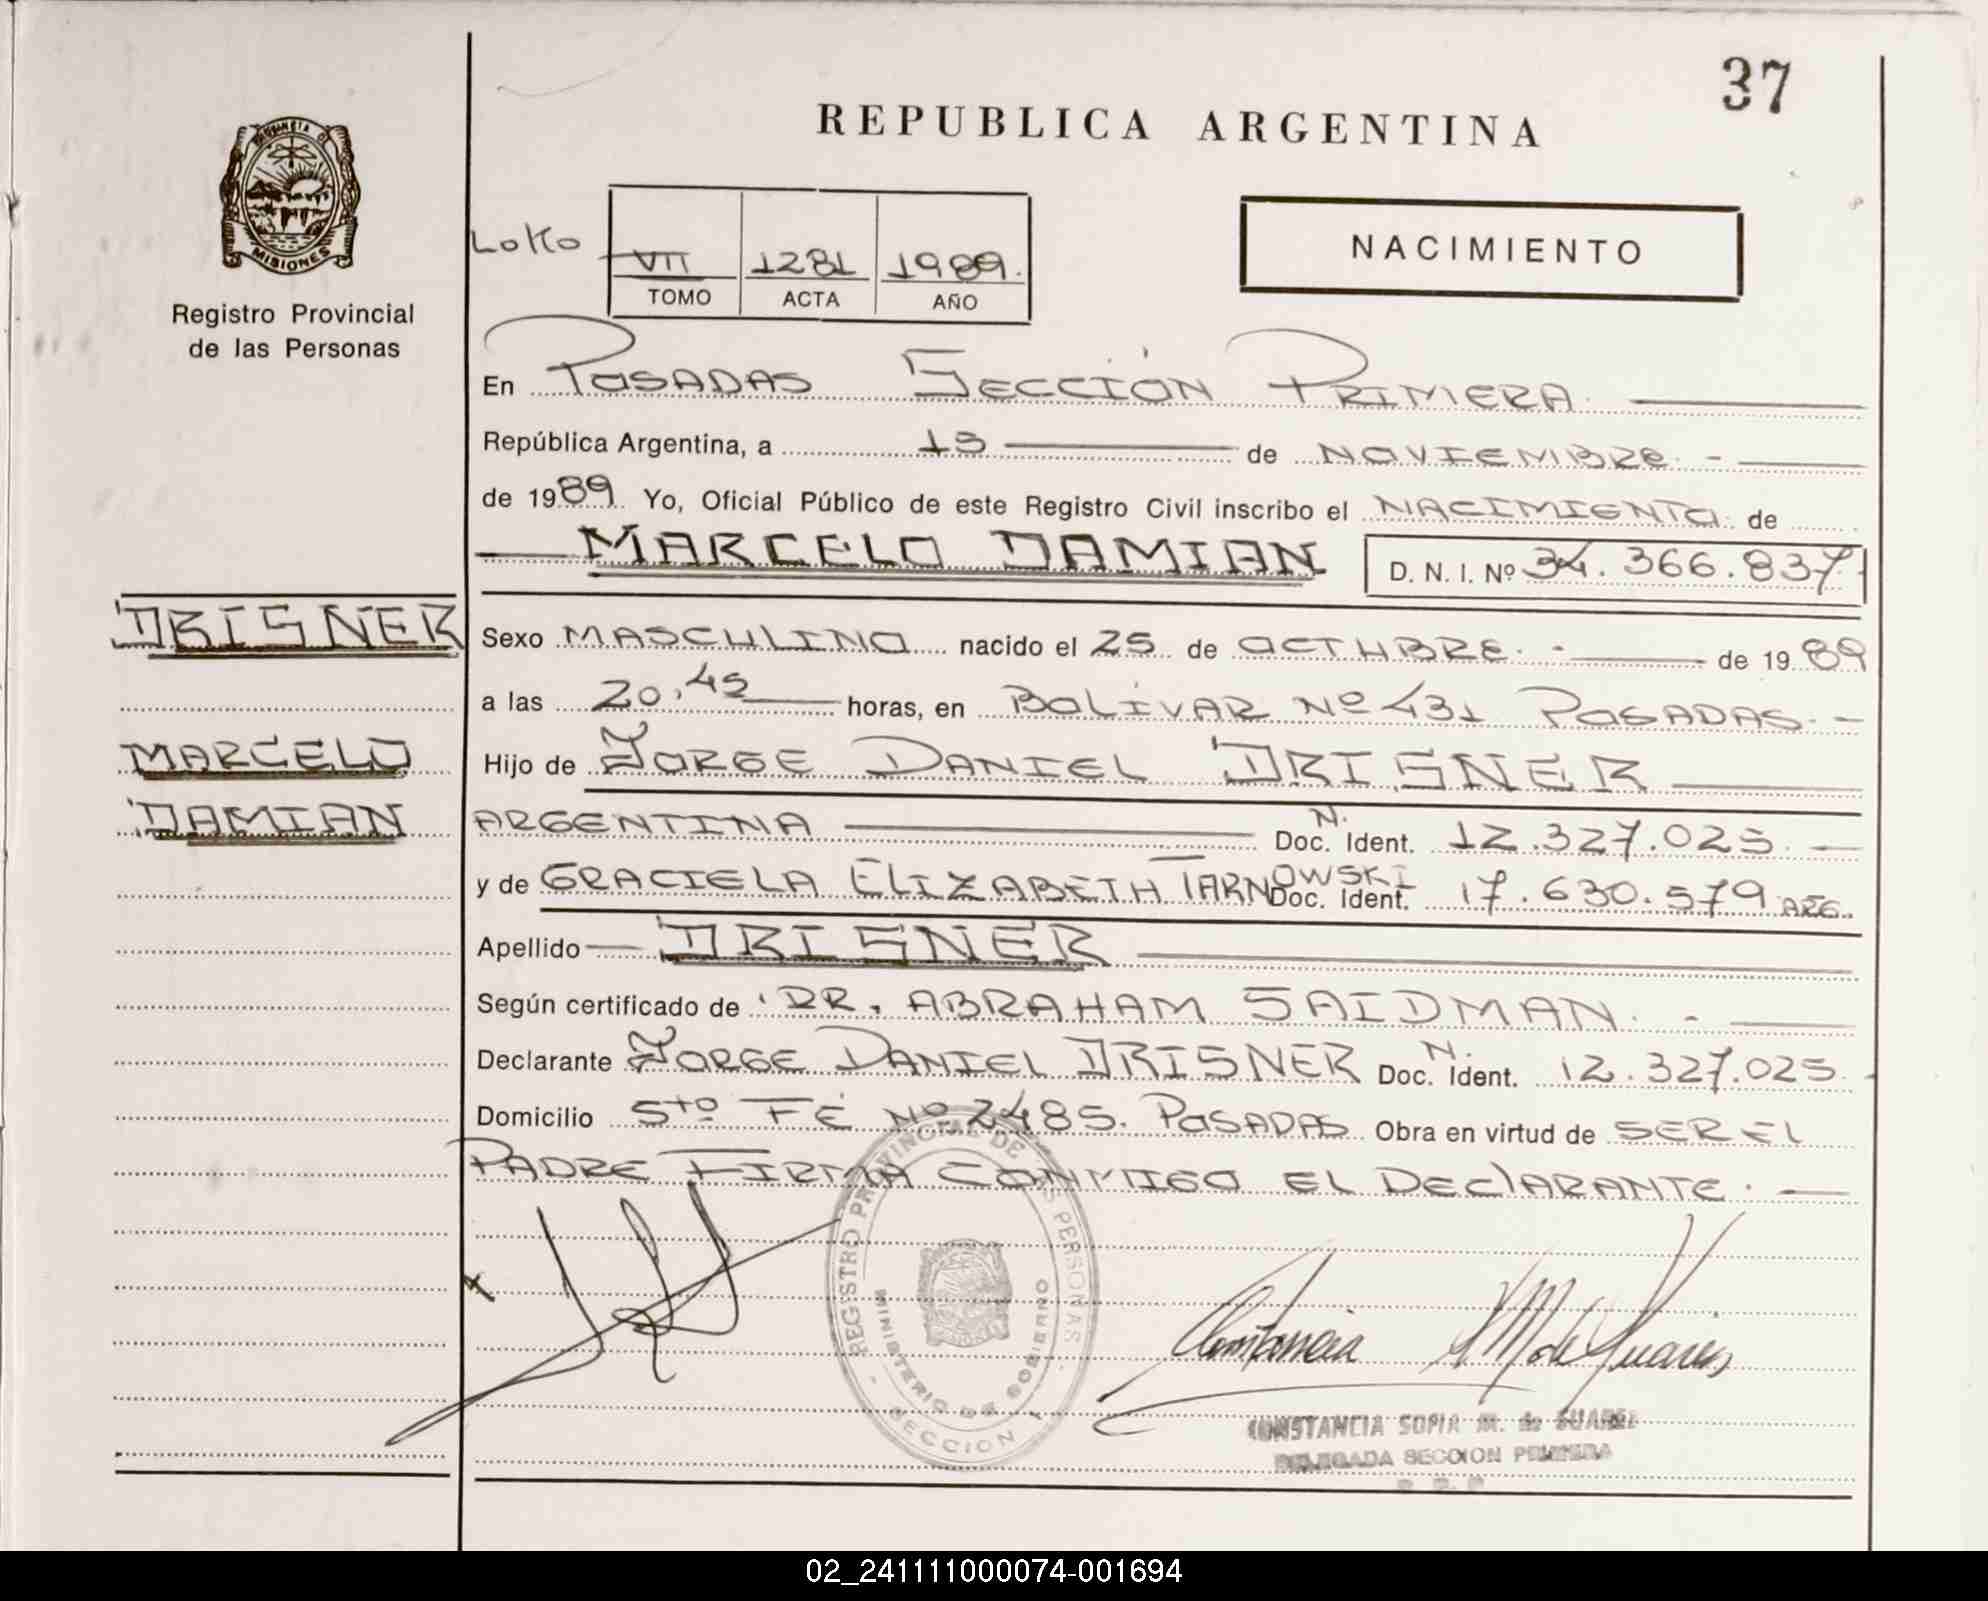 37
REPUBLICA ARGENTINA
PROVINCIA DE
MISIONES
Registro Provincial
de las Personas
LOKO
VII 1281 1989.
TOMO ACTA AÑO
NACIMIENTO
En POSADAS SECCIÓN PRIMERA
República Argentina, a 15 de NOVIEMBRE. -
de 1989. Yo, Oficial Público de este Registro Civil inscribo el NACIMIENTO de
MARCELO DAMIAN D. N. I. Nº 34.366.837
DRISNER
MARCELO
DAMIAN
Sexo MASCULINO nacido el 25 de OCTUBRE. - de 1989
a las 20,45 horas, en BOLÍVAR Nº 431 POSADAS. -
Hijo de JORGE DANIEL DRISNER
ARGENTINA N. Doc. Ident. 12.327.025. -
y de GRACIELA ELIZABETH TARNOWSKI Doc. Ident. 17.630.579 ARG.
Apellido DRISNER
Según certificado de DR. ABRAHAM SAIDMAN. -
Declarante JORGE DANIEL DRISNER N. Doc. Ident. 12.327.025.
Domicilio Sto FÉ Nº 2485. POSADAS Obra en virtud de SER EL
PADRE FIRMA CONMIGO EL DECLARANTE. -
REGISTRO PROVINCIAL DE LAS PERSONAS
MINISTERIO DE GOBIERNO
SECCION
Constancia M de Suarez
CONSTANCIA SOFIA M. de SUAREZ
DELEGADA SECCION PRIMERA
02_241111000074-001694